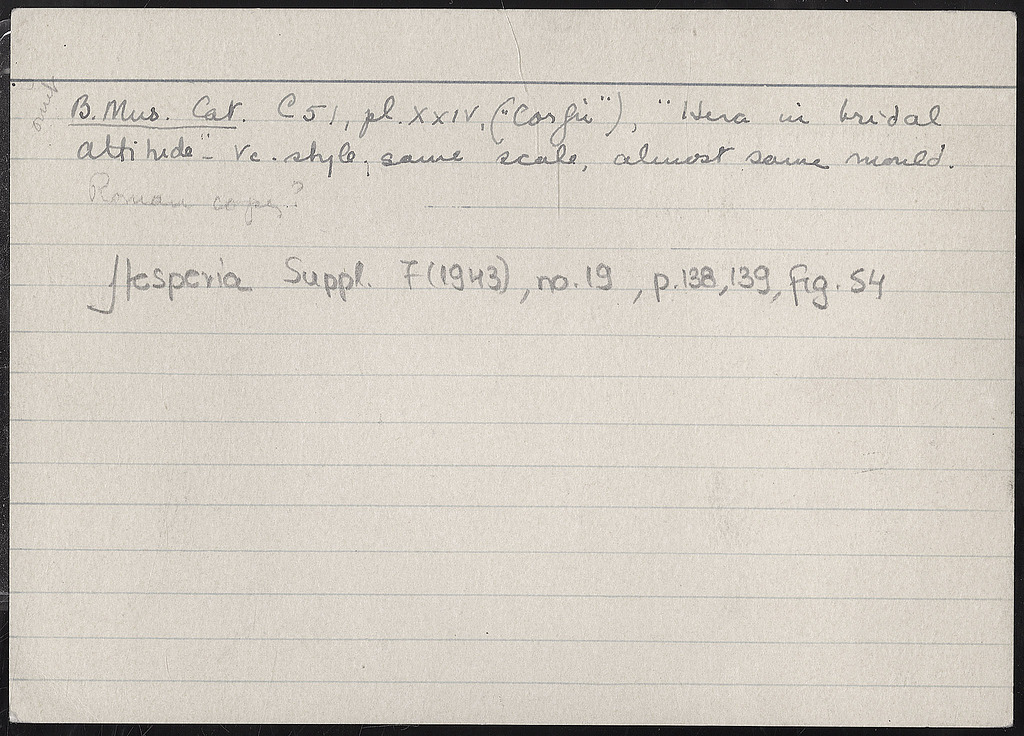 omit
B. Mus. Cat. C 51, pl. XXIV, ("Corfu"), "Hera in bridal
attitude" - Vc. style, same scale, almost same mould.
Roman copy?
Hesperia Suppl. 7 (1943), no. 19, p. 138, 139, fig. 54